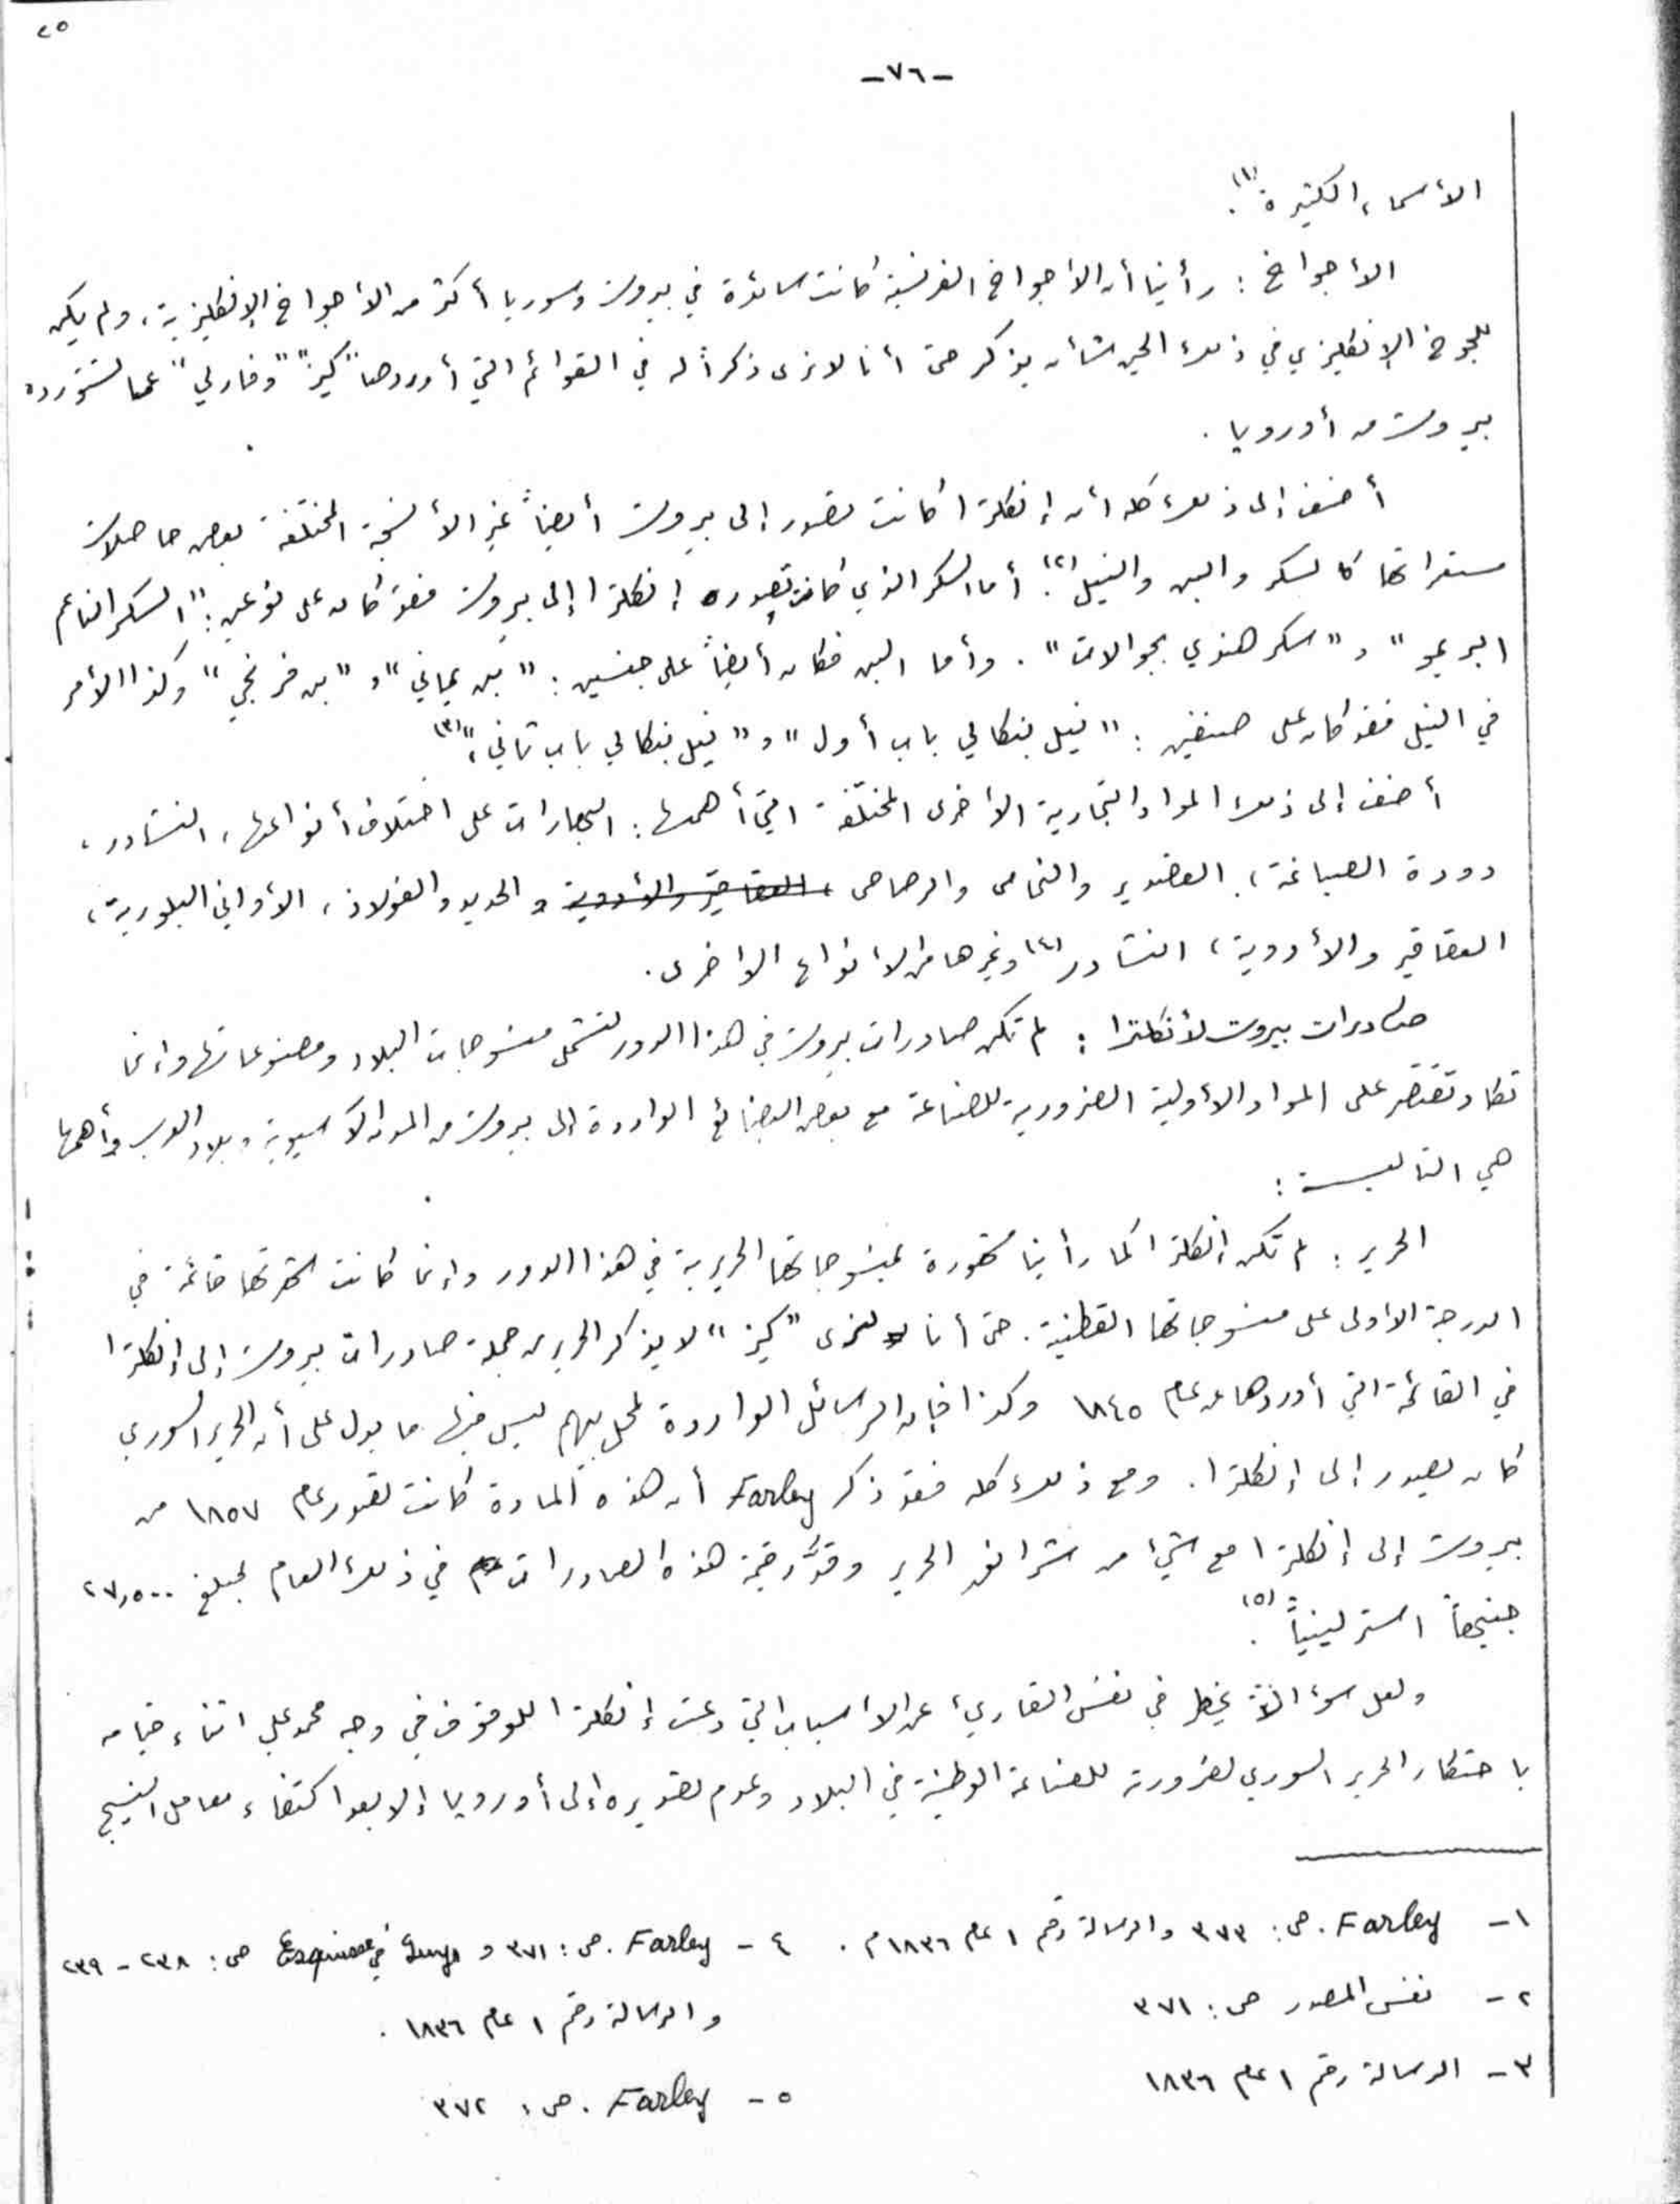 ٢٥
-٧٦-
الأسماء الكثيرة (١).
الأجواخ : رأينا أن الأجواخ الفرنسية كانت سائدة في بيروت وسوريا أكثر من الأجواخ الإنكليزية، ولم يكن
للجوخ الإنكليزي في ذلك الحين شأن يذكر حتى أنا لا نرى ذكراً له في القوائم التي أوردها "كيز" "وفارلي" عما تستورده
بيروت من أوروبا .
أضف إلى ذلك كله أن إنكلترا كانت تصدر إلى بيروت أيضاً غير الأنسجة المختلفة بعض حاصلات
مستعمراتها كالسكر والبن والنيل (٢). أما السكر الذي كانت تصدره إنكلترا إلى بيروت فقد كان على نوعين : "السكر الناعم
" و "سكر هندي بجوالات" . وأما البن فكان أيضاً على جنسين : "بن يماني" و "بن فرنجي" وكذا الأمر
في النيل فقد كان على صنفين : "نيل بنكالي باب أول" و "نيل بنكالي باب تاني" (٣)
أضف إلى ذلك المواد التجارية الأخرى المختلفة التي أهمها : البهارات على اختلاف أنواعها ، النشادر ،
دودة الصباغة ، القصدير والنحاس والرصاص ، العقاقير والأدوية و الحديد والفولاذ ، الأواني البلورية ،
العقاقير والأدوية ، النشادر (٤) وغيرها من الأنواع الأخرى .
صادرات بيروت لأنكلترا : لم تكن صادرات بيروت في هذا الدور لتشمل منسوجات البلاد ومصنوعاتها وإنما
تكاد تقتصر على المواد الأولية الضرورية للصناعة مع بعض البضائع الواردة إلى بيروت من المدن الآسيوية وبلاد العرب وأهمها
هي التالية :
الحرير : لم تكن إنكلترا كما رأينا مشهورة بمنسوجاتها الحريرية في هذا الدور وإنما كانت شهرتها قائمة في
الدرجة الأولى على منسوجاتها القطنية . حتى أنا لنرى "كيز" لا يذكر الحرير من جملة صادرات بيروت إلى إنكلترا
في القائمة التي أوردها عن عام ١٨٤٥ وكذا فإن الرسائل الواردة لمحل بيهم ليس فيها ما يدل على أن الحرير السوري
كان يصدر إلى إنكلترا . ومع ذلك كله فقد ذكر Farley أن هذه المادة كانت تصدر عام ١٨٥٧ من
بيروت إلى إنكلترا مع شيء من شرانق الحرير وقدَّر قيمة هذه الصادرات في ذلك العام بمبلغ ٢٧,٥٠٠
جنيهاً استرلينياً (٥).
ولعل سؤالاً يخطر في نفس القاريء عن الأسباب التي دعت إنكلترا للوقوف في وجه محمد علي اثناء قيامه
باحتكار الحرير السوري لضرورته للصناعة الوطنية في البلاد وعدم تصديره إلى أوروبا إلا بعد اكتفاء معامل النسيج
١- Farley . ص : ٣٧٣ والرسالة رقم ١ عام ١٨٣٦ م .
٢- نفس المصدر ص : ٣٧١
٣- الرسالة رقم ١ عام ١٨٣٦
٤- Farley . ص : ٣٧١ و Guys في Esquisse ص : ٢٣٨ - ٢٣٩
والرسالة رقم ١ عام ١٨٣٦ .
٥- Farley . ص : ٣٧٢